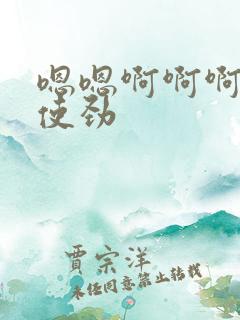 嗯嗯啊啊啊
使劲
贾宗洋
未经同意禁止转载